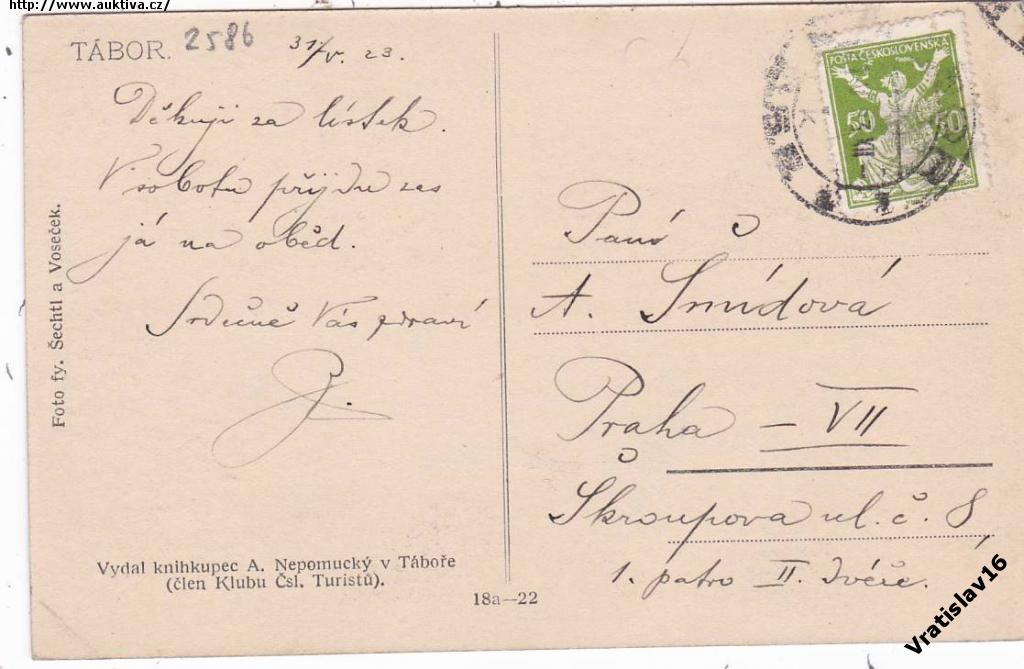 http://www.auktiva.cz/
TÁBOR. 2586 31/V. 23.
Děkuji za lístek.
V sobotu přijdu zas
já na oběd.
Srdečně Vás zdraví
Foto fy. Šechtl a Voseček.
Vydal knihkupec A. Nepomucký v Táboře
(člen Klubu Čsl. Turistů).
18a—22
POŠTA ČESKOSLOVENSKÁ
50 50
Paní
A. Šmídová
Praha — VII
Škroupova ul. č. 8,
1. patro II. dvéře.
Vratislav16